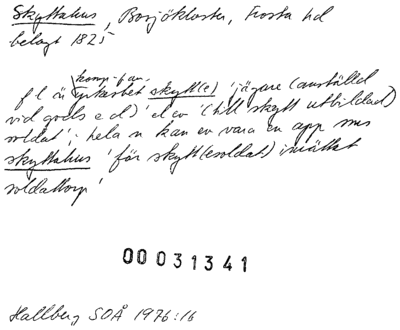 Skyttahus, Bosjökloster, Frosta hd
belagt 1825
komp.-fan.
f l är yrkesbet skytt(e) 'jägare (anställd
vid gods e d)' el ev '(till skytt utbildad)
soldat'; hela n kan ev vara en app sms
skyttahus 'för skytt(esoldat) inrättat
soldattorp'
00031341
Hallberg SOÅ 1976:16